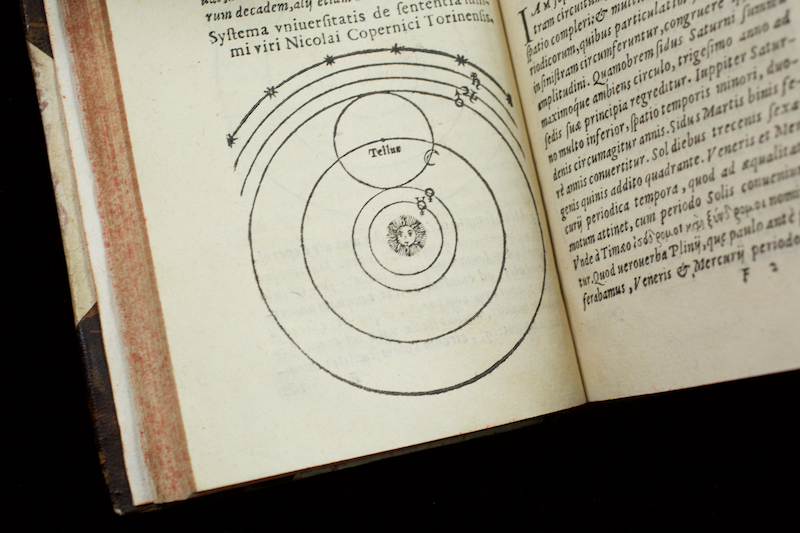 rum decadem, alij etiam
Systema vniuersitatis de sententia
mi viri Nicolai Copernici Torinensis.
Tellus
tram circuitum
spatio compleri: & mu
riodicorum, quibus particulatior
in sinistram circumferuntur, congruere
amplitudini. Quamobrem sidus Saturni summa
maximoque ambiens circulo, trigesimo anno ad
sedis suæ principia regreditur. Iuppiter Satur-
no multo inferior, spatio temporis minori, duo-
denis circumagitur annis. Sidus Martis binis fe-
rè annis conuertitur. Sol diebus trecenis sexa
genis quinis addito quadrante. Veneris et Mer
curij periodica tempora, quod ad æqualitatem
motum attinet, cum periodo Solis conueniunt
Vnde à Timæo
tur. Quod uero uerba Plinij, quę paulo antè
ferabamus, Veneris & Mercurij periodo
F 2